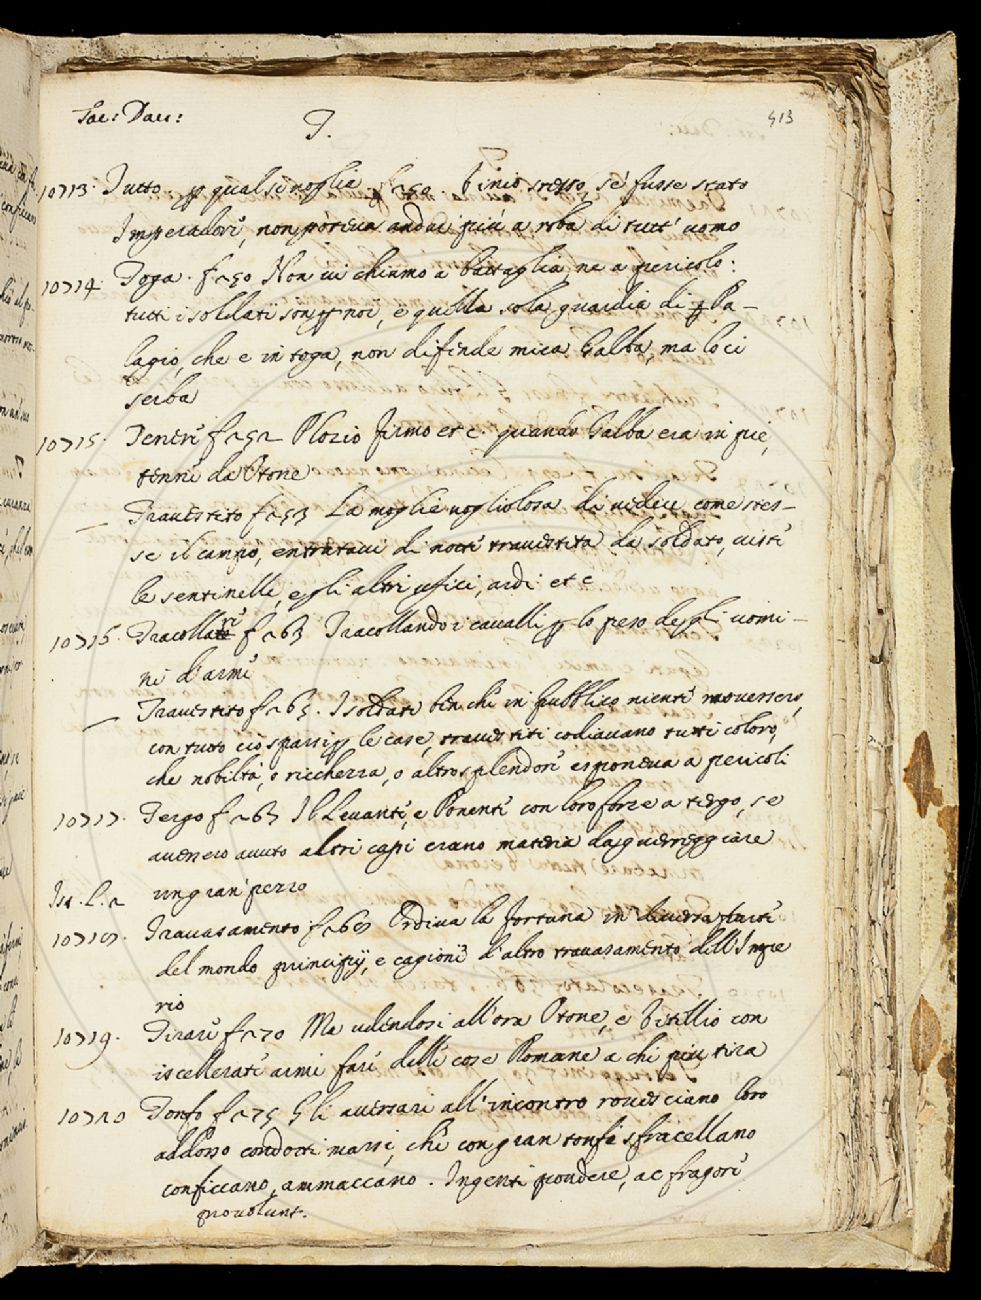 Tac: Dau: T. 413
10713. Tutto. p qualsivoglia f 250. Tinio stesso, sé fusse stato
Imperadori, non poteva andar più a roba di tutt' uomo
10714. Toga. f 250 Non vi chiamo a battaglia, ne a pericolo:
tutti i soldati son p noi, e quella sola guardia di Pa-
lagio, che e in toga, non difende mica Galba, ma lo ci
serba
10715. Teneri f 252 Plozio firmo etc. quando Galba era in pie,
tenne da Otone
— Travestito f 253 La moglie vogliolosa di vedere come stes-
se il campo, entratavi di notte travestita da soldato, visti
le sentinelle, e gli altri ufici, ardi etc
10716. Tracollare f 263 Tracollando i cavalli p lo peso degl' uomi-
ni d'armi
— Travestito f 265. I soldati ben chi in pubblico niente movessero,
con tutto ciò sparsi p le case, travestiti codiavano tutti coloro,
che nobiltà, o ricchezza, o altro splendore esponeva a pericoli
10717. Tergo f 267 Il Levante, e Ponente con loro forze a tergo, se
avessero avuto altri capi erano materia da guerreggiare
un gran' pezzo
Ist. L. 2
10718. Travasamento f 269 Ordiva la fortuna in diversa parte
del mondo principij, e cagioni d'altro travasamento dell' Impe
rio
10719. Tirare f 270 Ma udendosi all'ora Otone, e Vitellio con
iscellerate armi fare delle cose Romane a chi piu tira
10720 Tonfo f 275 Gli aversari all' incontro rovesciano loro
addosso condotti massi, che con gran tonfo sfracellano
conficcano, ammaccano. Ingenti pondere, ac fragore
provolunt.